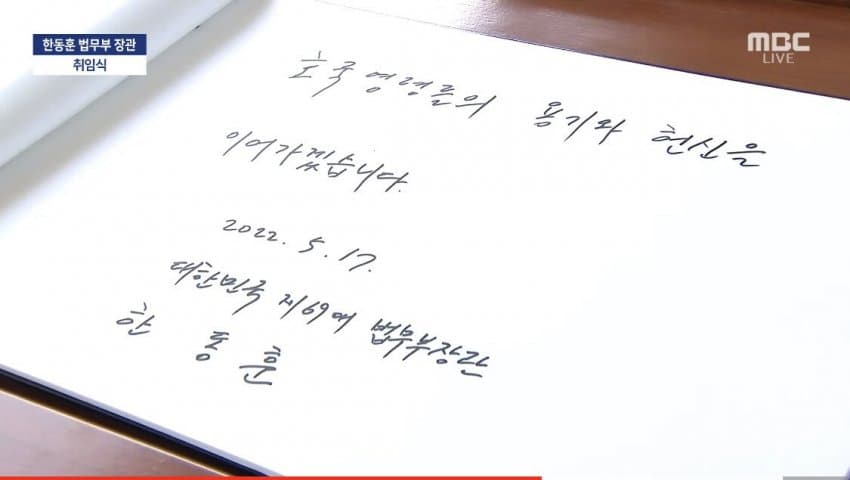 한동훈 법무부 장관
취임식
MBC
LIVE
호국영령들의 용기와 헌신을
이어가겠습니다.
2022. 5. 17.
대한민국 제69대 법무부장관
한 동 훈